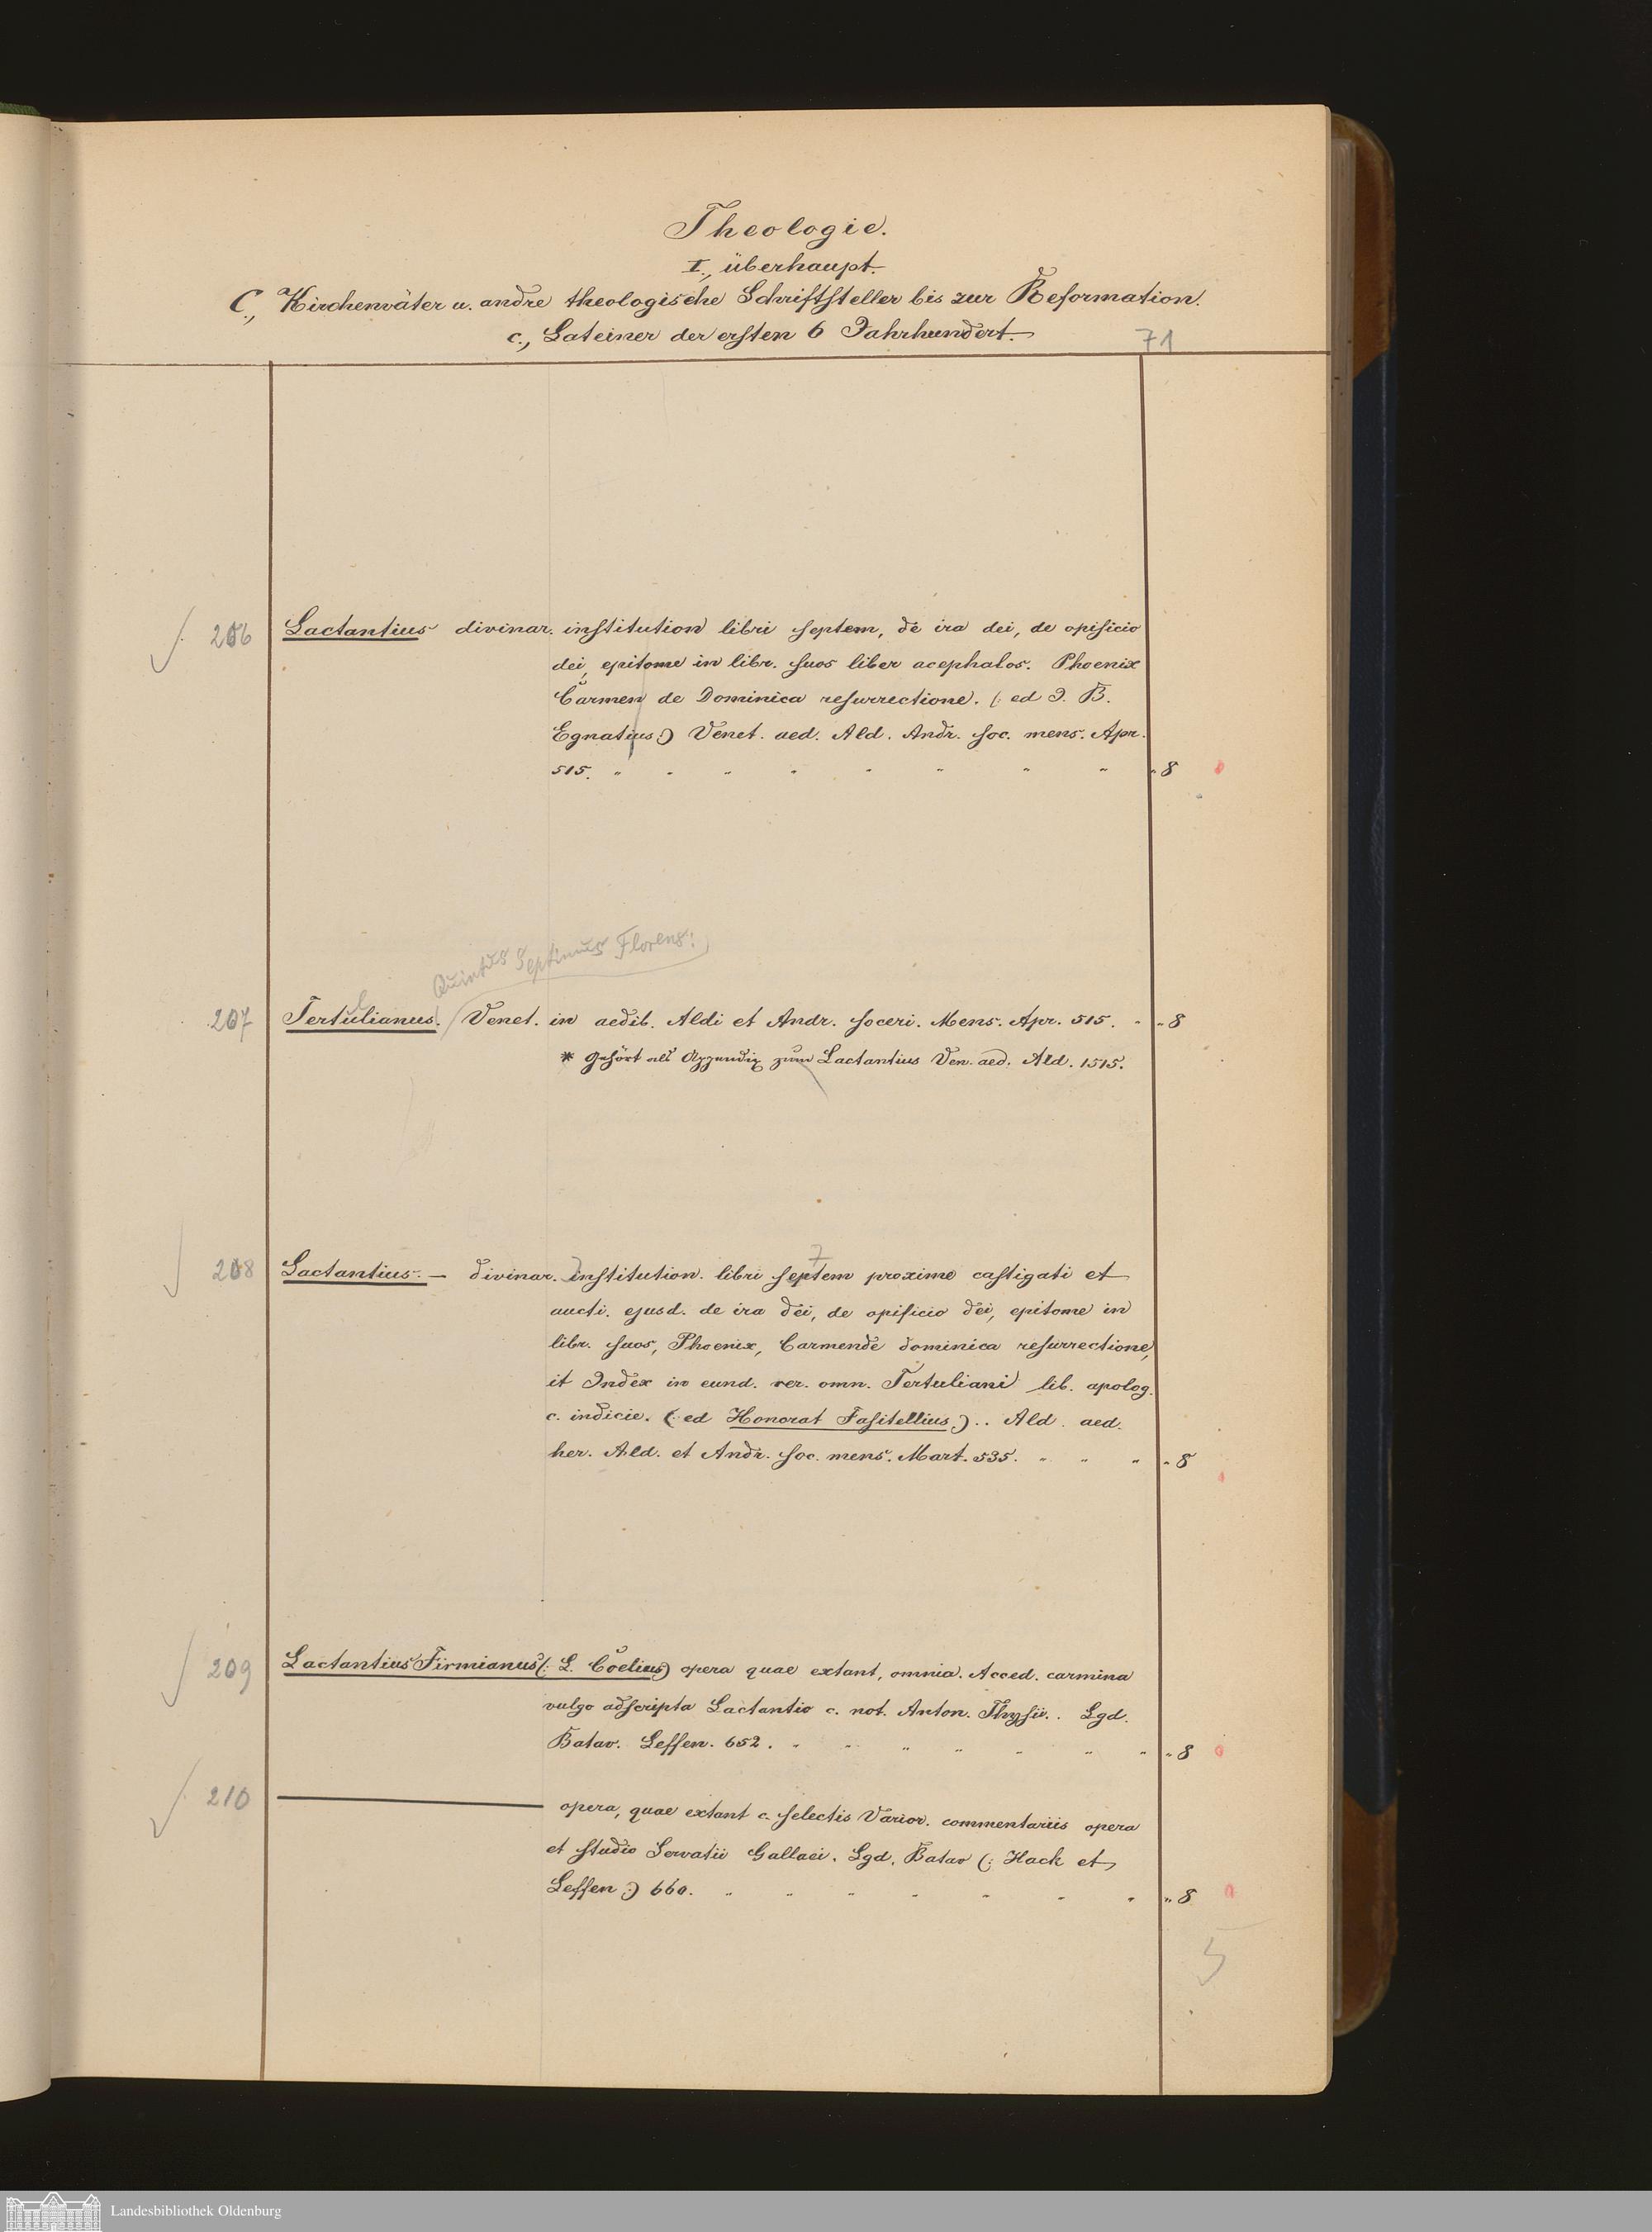 Theologie.
I., überhaupt.
C., Kirchenväter u. andre theologische Schriftsteller bis zur Reformation.
c., Lateiner der ersten 6 Jahrhundert.
71
206 Lactantius divinar. institution libri septem, de ira dei, de opificio
dei, epitome in libr. suos liber acephalos. Phoenix
Carmen de Dominica resurrectione. (: ed J. B.
Egnatius:) Venet. aed. Ald. Andr. soc. mens. Apr.
515. " " " " " " " " " 8
Quintus Septimus Florens:
207 Tertulianus. Venet. in aedib. Aldi et Andr. soceri. Mens. Apr. 515. " " 8
l
* Gehört als Appendix zum Lactantius Ven. aed. Ald. 1515.
7
208 Lactantius. — divinar. institution. libri septem proxime castigati et
aucti. ejusd. de ira dei, de opificio dei, epitome in
libr. suos, Phoenix, Carmende dominica resurrectione,
it Index in eund. rer. omn. Tertuliani lib. apolog.
c. indicie. (: ed Honorat Fasitellius.) .. Ald. aed.
her. Ald. et Andr. soc. mens. Mart. 535. " " " " 8
209 Lactantius Firmianus (: L. Coelius) opera quae extant, omnia. Acced. carmina
vulgo adscripta Lactantio c. not. Anton. Thysii.. Lgd.
Batav. Leffen. 652. " " " " " " " " 8
210 — opera, quae extant c. selectis Varior. commentariis opera
et studio Servatii Gallaei. Lgd. Batav (: Hack et
Leffen :) 660. " " " " " " " " 8
5
Landesbibliothek Oldenburg